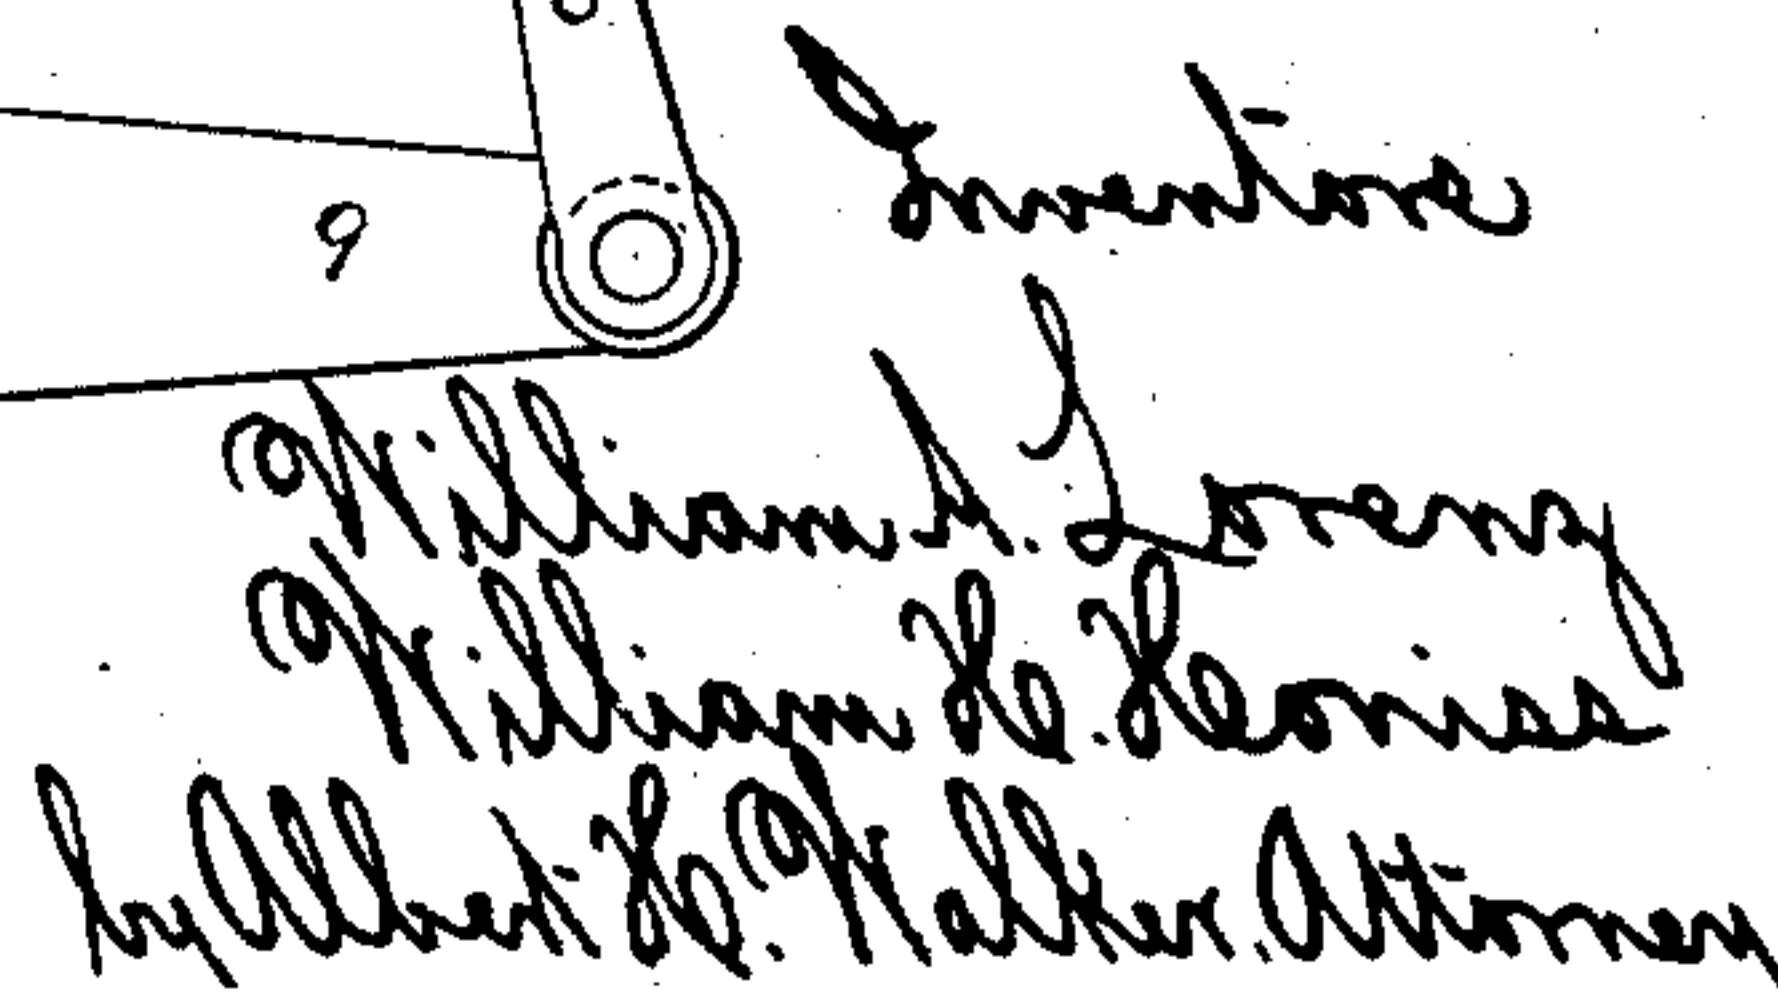 9
Inventors
William A. Lorenz
William H. Honiss
by Albert H. Walker. Attorney